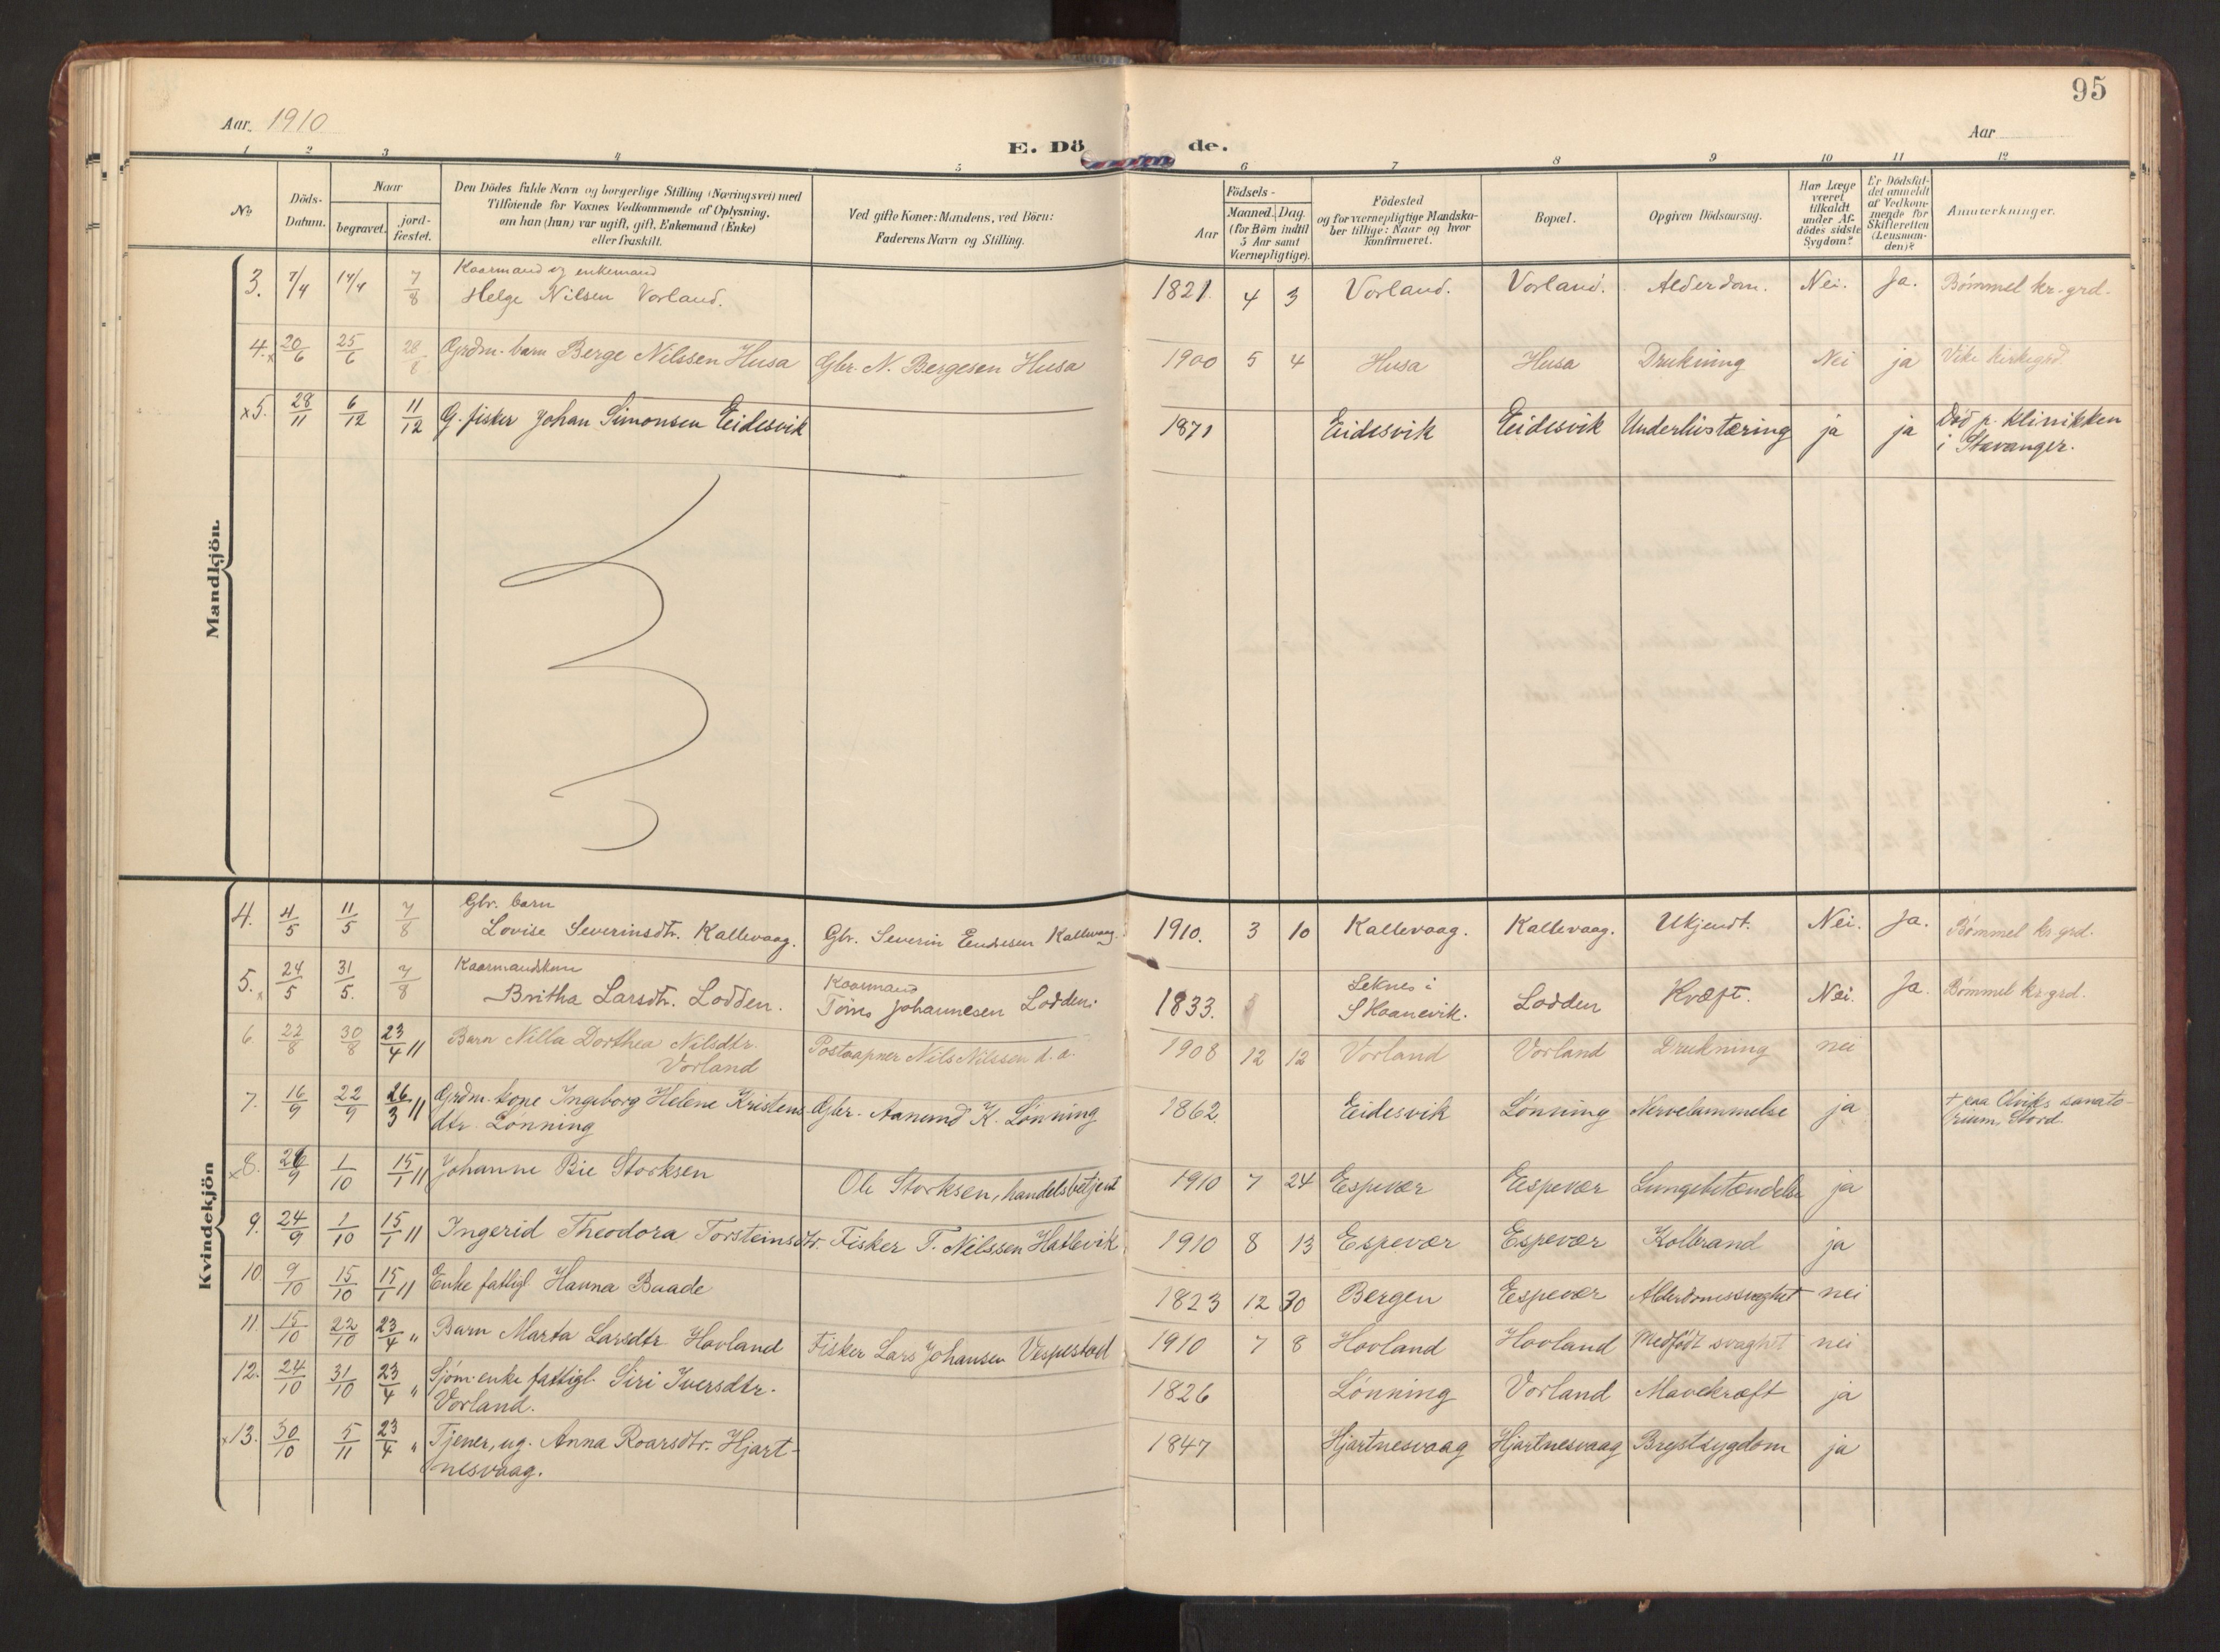 95
Aar. 1910
Aar
E. Dö de.
1 2 3 4 5 6 7 8 9 10 11 12
No
Döds-
Datum.
Naar
begravet.
jord-
fæstet.
Den Dödes fulde Navn og borgerlige Stilling (Næringsvei) med
Tilföiende for Voxnes Vedkommende af Oplysning,
om han (hun) var ugift, gift, Enkemand (Enke)
eller fraskilt.
Ved gifte Koner: Mandens, ved Börn:
Faderens Navn og Stilling.
Födsels-
Aar
Maaned. Dag.
(for Börn indtil
5 Aar samt
Værnepligtige).
Födested
og for værnepligtige Mandska-
ber tillige: Naar og hvor
konfirmeret.
Bopæl.
Opgiven Dödsaarsag.
Har Læge
været
tilkaldt
under Af-
dödes sidste
Sygdom?
Er Dödsfal-
det anmeldt
af Vedkom-
mende for
Skifteretten
(Lensman-
den)?
Anmærkninger.
Mandkjön.
3. 7/4 14/4 7/8 Kaarmand og enkemand
Helge Nilsen Vorland. 1821. 4 3 Vorland. Vorland. Alderdom. Nei. Ja. Bømmel kr-grd.
4. x 20/6 25/6 28/8 Grdm. barn Berge Nilssen Husa Gbr. N. Bergesen Husa 1900 5 4 Husa Husa Drukning Nei ja Vike kirkegrd
x5. 28/11 6/12 11/12 G. fisker Johan Simonsen Eidesvik 1871 Eidesvik Eidesvik Underlivstæring ja ja Død p. klinikken
i Stavanger.
Kvindekjön
4. 4/5 11/5 7/8 Gbr. barn
Lovise Severinsdtr. Kallevaag. Gbr. Severin Endresen Kallevaag. 1910. 3 10 Kallevaag. Kallevaag. Ukjendt. Nei. Ja. Bømmel kr.grd.
5. x 24/5 31/5. 7/8 Kaarmandskone
Britha Larsdtr. Lodden. Kaarmand
Tönes Johannesen Lodden. 1833. Leknes i
Skaanevik. Lodden Kræft. Nei. Ja. Bømmel kr-grd.
6. 22/8 30/8 23/4 11 Barn Nilla Dorthea Nilsdtr.
Vorland Postaapner Nils Nilssen d. a. 1908 12 12 Vorland Vorland Drukning nei
7. 16/9 22/9 26/3 11 Grdm. kone Ingeborg Helene Kristens-
dtr. Lønning Gbr. Aanund K. Lønning 1862. Eidesvik Lønning Nervelammelse ja + paa Olviks sanato-
rium, Stord.
x8. 26/9 1/10 15/1 11 Johanne Bie Storksen Ole Storksen, handelsbetjent 1910 7 24 Espevær Espevær Lungebetændelse ja
9. 24/9 1/10 15/1 11 Ingerid Theodora Torsteinsdtr. Fisker T. Nilssen Hatlevik 1910 8 13 Espevær Espevær Kolbrand ja
10 9/10 15/10 15/1 11 Enke fattigl. Hanna Baade 1823 12 30 Bergen Espevær Alderdomssvaghet nei
11. 15/10 22/10 23/4 " Barn Marta Larsdtr Hovland Fisker Lars Johansen Vespestad 1910 7 8 Hovland Hovland Medfødt svaghet nei
12. 24/10 31/10 23/4 " Sjøm. enke fattigl. Siri Iversdtr.
Vorland. 1826 Lønning Vorland Mavekræft ja
x13. 30/10 5/11 23/4 " Tjener, ug. Anna Roarsdtr. Hjart-
nesvaag. 1847 Hjartnesvaag Hjartnesvaag Brystsygdom ja